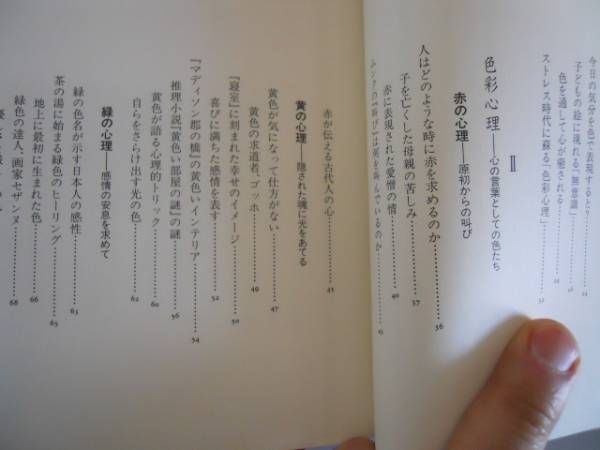 今日の気分を色で表現すると？
子どもの絵に現れる「無意識」
色を通して心が癒される
ストレス時代に蘇る「色彩心理」 32
II
色彩心理――心の言葉としての色たち
赤の心理――原初からの叫び
人はどのような時に赤を求めるのか 36
子を亡くした母親の苦しみ 37
赤に表現された愛憎の情 40
ムンクの『叫び』は何を叫んでいるのか
赤が伝える古代人の心 45
黄の心理――隠された魂に光をあてる
黄色が気になって仕方がない 47
黄色の求道者、ゴッホ 49
『寝室』に刻まれた幸せのイメージ 50
喜びに満ちた感情を表す 52
『マディソン郡の橋』の黄色いインテリア 54
推理小説『黄色い部屋の謎』の謎 56
黄色が語る心理的トリック 60
自らをさらけ出す光の色 62
緑の心理――感情の安息を求めて
緑の色名が示す日本人の感性 63
茶の湯に始まる緑色のヒーリング 65
地上に最初に生まれた色 66
緑色の達人、画家セザンヌ 68